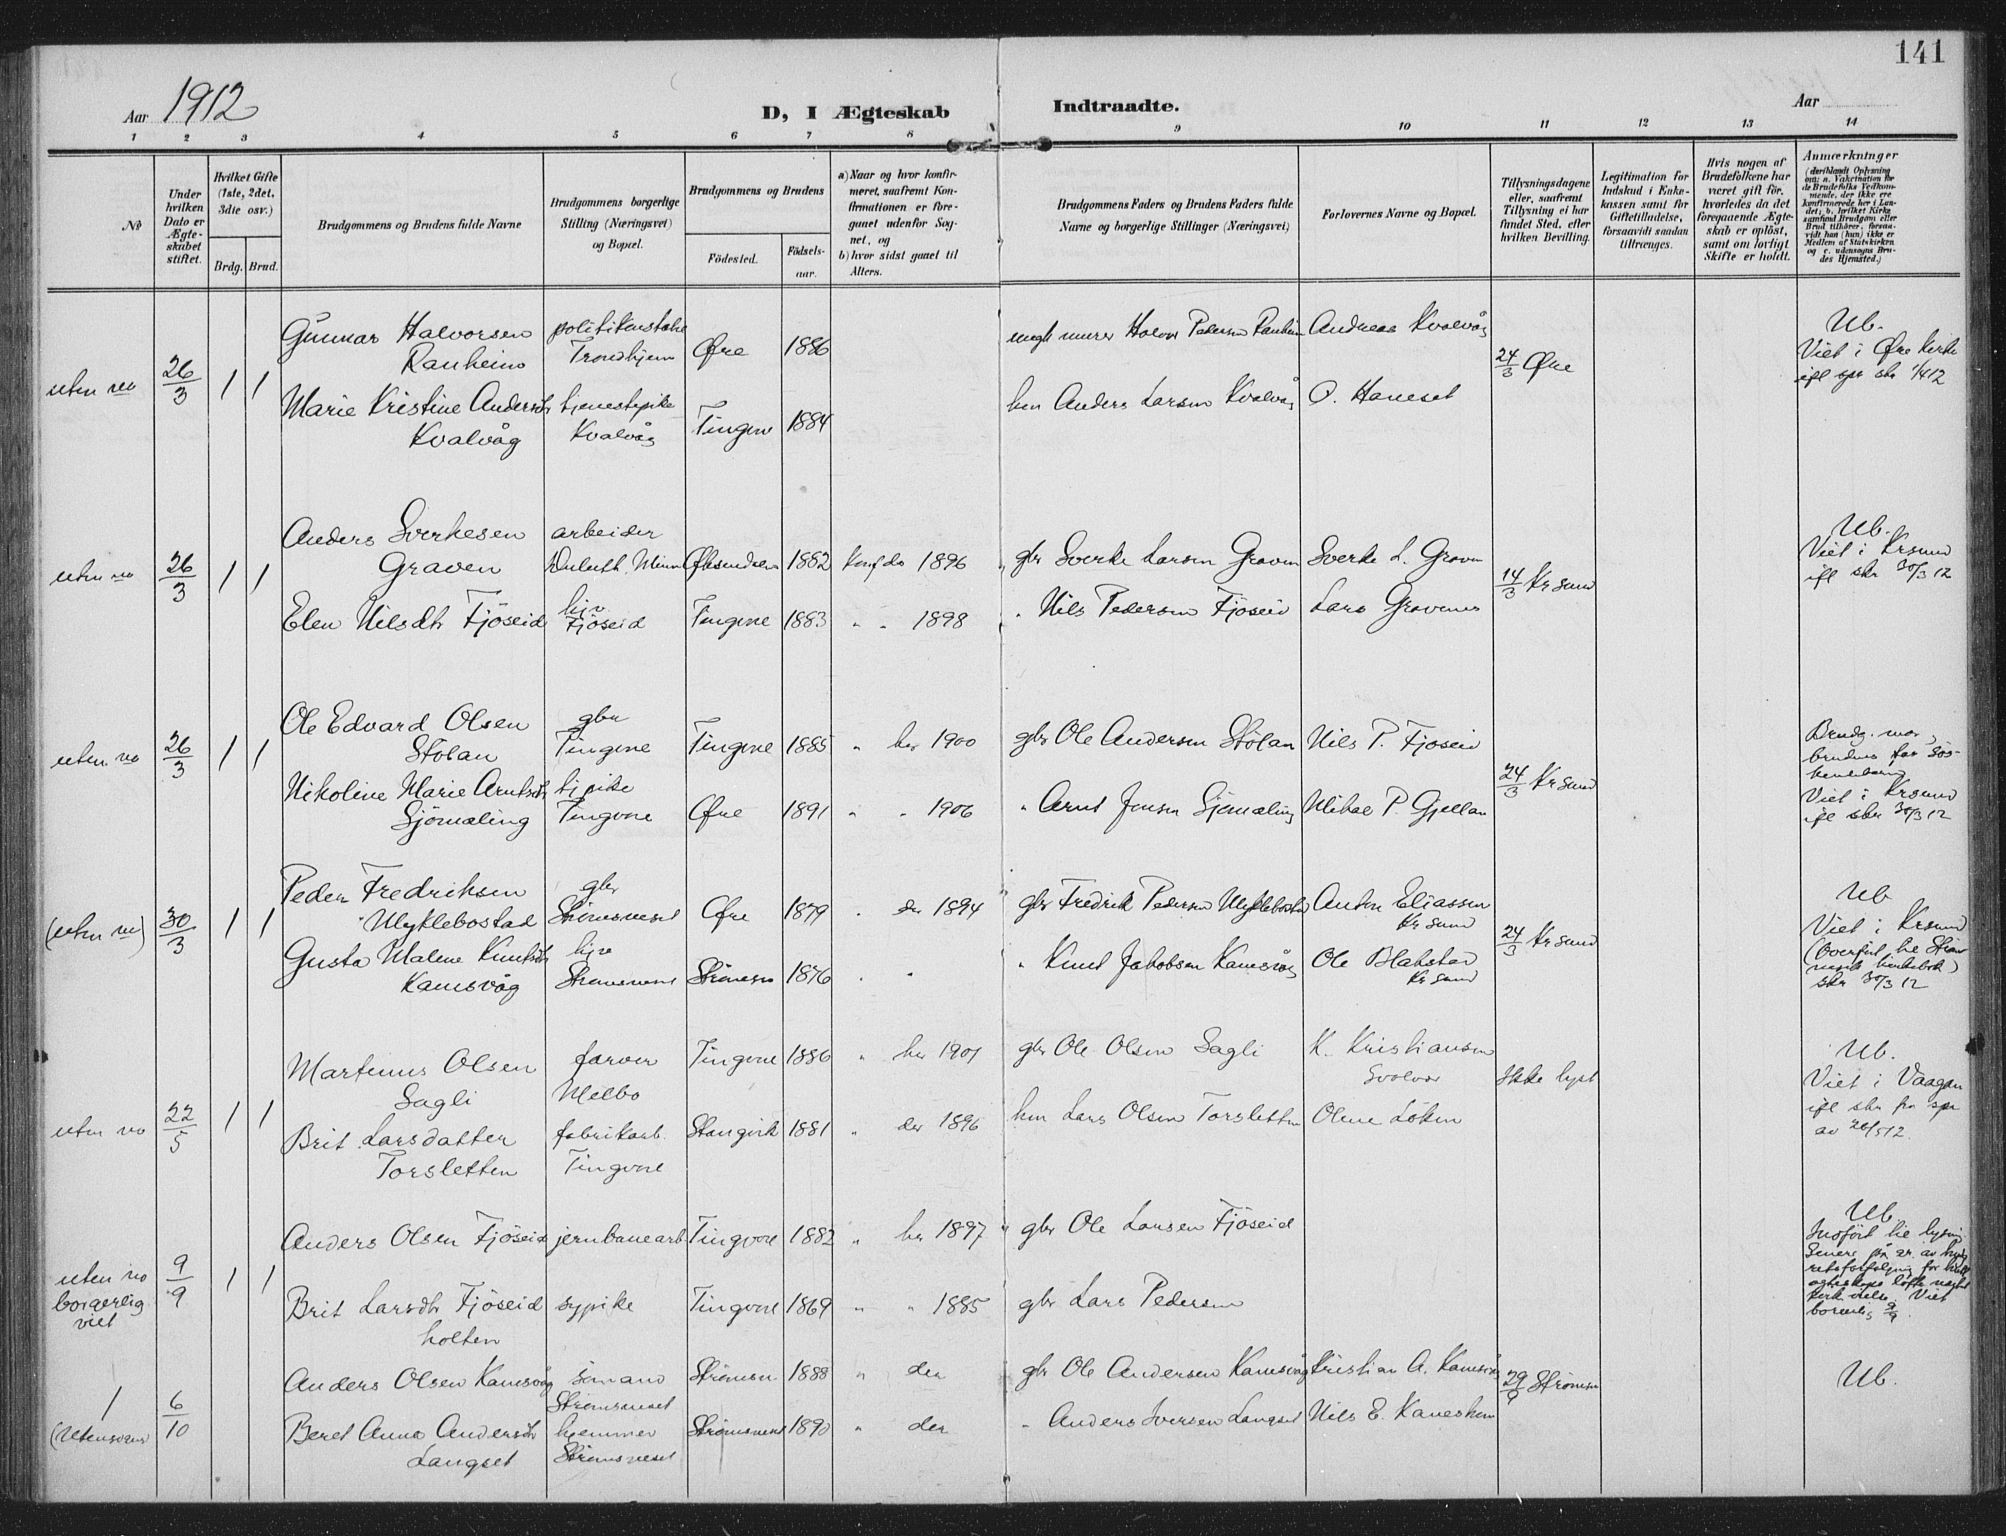 141
Aar 1912
D, I Ægteskab Indtraadte.
Aar
1 2 3 4 5 6 7 8 9 10 11 12 13 14
No
Under hvilken Dato er Ægteskabet stiftet.
Hvilket Gifte (1ste, 2det, 3die osv.)
Brdg. Brud.
Brudgommens og Brudens fulde Navne
Brudgommens borgerlige Stilling (Næringsvei) og Bopæl.
Brudgommens og Brudens
Fødested.
Fødselsaar.
a) Naar og hvor konfirmeret, saafremt Konfirmationen er foregaaet udenfor Sognet, og
b) hvor sidst gaaet til Alters.
Brudgommens Faders og Brudens Faders fulde Navne og borgerlige Stillinger (Næringsvei)
Forlovernes Navne og Bopæl.
Tillysningsdagene eller, saafremt Tillysning ei har fundet Sted, efter hvilken Bevilling.
Legitimation for Indskud i Enkekassen samt for Giftetilladelse, forsaavidt saadan tiltrænges.
Hvis nogen af Brudefolkene har været gift før, hvorledes da det foregaaende Ægteskab er opløst, samt om lovligt Skifte er holdt.
Anmærkninger
(deriblandt Oplysning om: a. Vakcination for de Brudefolks Vedkommende, der ikke ere konfirmerede her i Landet; b. hvilket Kirkesamfund Brudgom eller Brud tilhører, forsaavidt han (hun) ikke er Medlem af Statskirken og c. udensogns Brudes Hjemsted.)
uten no 26/3 1 1
Gunnar Halvorsen Ranheim
politikonstabel Trondhjem Øre 1886
murer Halvor Pedersen Ranheim
Andreas Kvalvåg
24/3 Øre
Ub.
Viet i Øre kirke
ifl spr skr 1/4 12
Marie Kristine Andersdtr Kvalvåg
tjenestepike Kvalvåg Tingvo 1884
Anders Larsen Kvalvåg
O. Haneset
uten no 26/3 1 1
Anders Sverkesen Graven
arbeider Duluth, Minn Øksendalen 1882
konf der 1896
gbr Sverke Larsen Graven
Sverke L. Graven
14/3 Kr sund
Ub.
Viet i Krsund
ifl skr 30/3 12
Elen Nilsdtr Fjöseid
hjv Fjöseid Tingvoe 1883
" " 1898
" Nils Pedersen Fjöseid
Lars Gravenes
uten no 26/3 1 1
Ole Edvard Olsen Stölan
gbr Tingvoe Tingvoe 1885
" her 1900
gbr Ole Andersen Stölan
Nils P. Fjøseid
24/3 Kr sund
Brudg. mor,
brudens far søs-
kendebarn
Viet i Krsund
ifl skr 30/3 12
Nikoline Marie Arntsdtr Sjömæling
tj pike Tingvoe Øre 1891
" " 1906
" Arnt Jonsen Sjömæling
Mikal P. Gjellan
(uten no) 30/3 1 1
Peder Fredriksen Myklebostad
gbr Strømsneset Øre 1879
" der 1894
gbr Fredrik Pedersen Myklebostad
Anton Eliassen Kr sund
24/3 Kr sund
Ub
Viet i Krsund
(Overført til Strøms-
nesets kirkebok)
skr 30/3 12
Gusta Malene Knutsdtr Kamsvåg
hjv Strømsneset Strömsn 1876
" "
" Knut Jakobsen Kamsvåg
Ole Blakstad Kr sund
uten no 22/5 1 1
Martinus Olsen Sagli
farver Melbo Tingvoe 1886
" her 1901
gbr Ole Olsen Sagli
K. Kristiansen Svolvær
Ikke lyst
Ub.
Viet i Vaagan
ifl skr fra spr
av 26/5 12.
Brit Larsdatter Torsletten
fabrikarb. Tingvoe Stangvik 1881
" der 1896
Lars Olsen Torsletten
Olene Löken
uten no borgerlig viet 9/9 1 1
Anders Olsen Fjöseid
jernbanearb Tingvoe 1882
" her 1897
gbr Ole Larsen Fjöseid
Ub
Viet
borgerlig 9/9.
Brit Larsdtr Fjöseidholten
sypike Tingvoe 1869
" " 1885
gbr Lars Pedersen
1 (Utensogns) 6/10
Anders Olsen Kamsvåg
sömand Strømsneset Strömsn 1888
" der
gbr Ole Andersen Kamsvåg
Kristian A. Kamsvåg
29/9 Strömsn
Ub.
Beret Anna Andersdtr Langset
hjemmev Strømsneset Strømsneset 1890
" der
" Anders Iversen Langset
Nils E. Kanestrøm